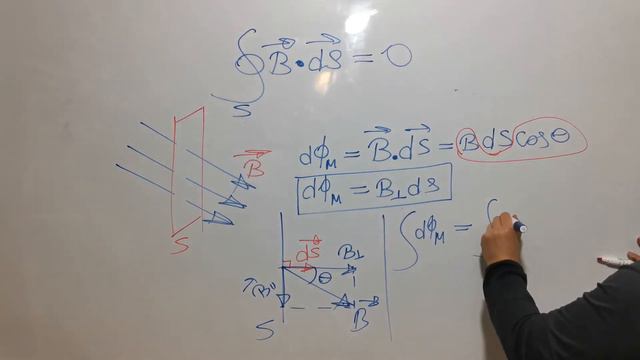 ∮ B⃗ • dS⃗ = 0
S
dΦ_M = B⃗ . dS⃗ = B dS cosθ
dΦ_M = B⊥ dS
B⃗
S
dS⃗ B⊥
θ
B⃗
S
∫ dΦ_M = ∫